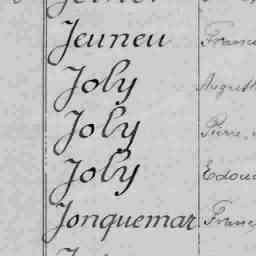 Jeuneu
Joly August
Joly Pierre
Joly Edoua
Jonquemar Franç